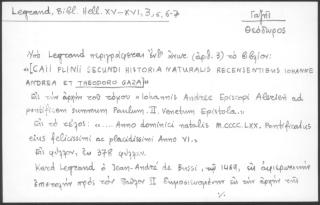 Legrand, Bibl. Hell. XV-XVI, 3, 5, 6-7
Γαζῆς
Θεόδωρος
Ὑπὸ Legrand περιγράφεται (ἀρ. 3) τὸ βιβλίον:
«[CAII PLINII SECUNDI HISTORIA NATURALIS RECENSENTIBUS IOHANNE
ANDREA ET THEODORO GAZA]»
Εἰς τὴν ἀρχὴν τοῦ τόμου «Iohannis Andree Episcopi Alerien ad
pontificem summum Paulum. II. Venetum Epistola.»
Εἰς τὸ τέλος: «.... Anno dominici natalis M.CCCC.LXX. Pontificadus
eius felicissimi ac placidissimi Anno VI.»
Εἰς φύλλον, ἐκ 378 φύλλων.
Κατὰ Legrand ὁ Jean-André de Bussi, τῷ 1469, ἐν
ἐπιστολῇ πρὸς τὸν Παῦλον II δημοσιευομένῃ ἐν τῇ ἀρχῇ τῆς